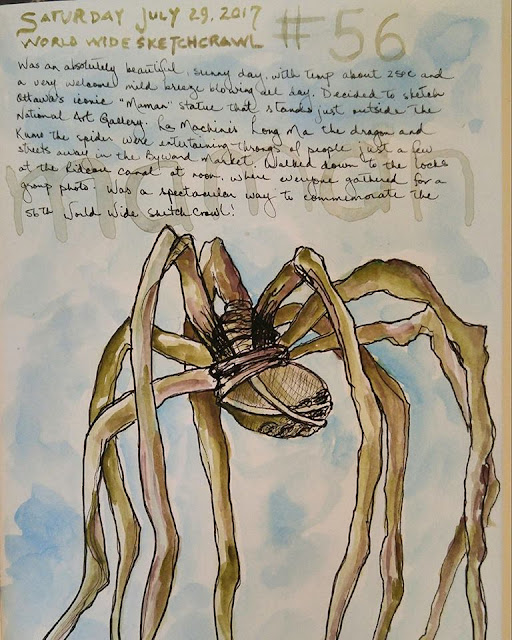 SATURDAY JULY 29, 2017
WORLD WIDE SKETCHCRAWL #56
Was an absolutely beautiful, sunny day, with temp about 25°C and
a very welcomed mild breeze blowing all day. Decided to sketch
Ottawa's iconic "Maman" statue that stands just outside the
National Art Gallery. La Machine's Long Ma the dragon and
Kumo the spider were entertaining throngs of people just a few
streets away in the Byward Market. Walked down to the locks
at the Rideau canal at noon, where everyone gathered for a
group photo. Was a spectacular way to commemorate the
56th World Wide Sketch Crawl!
maman